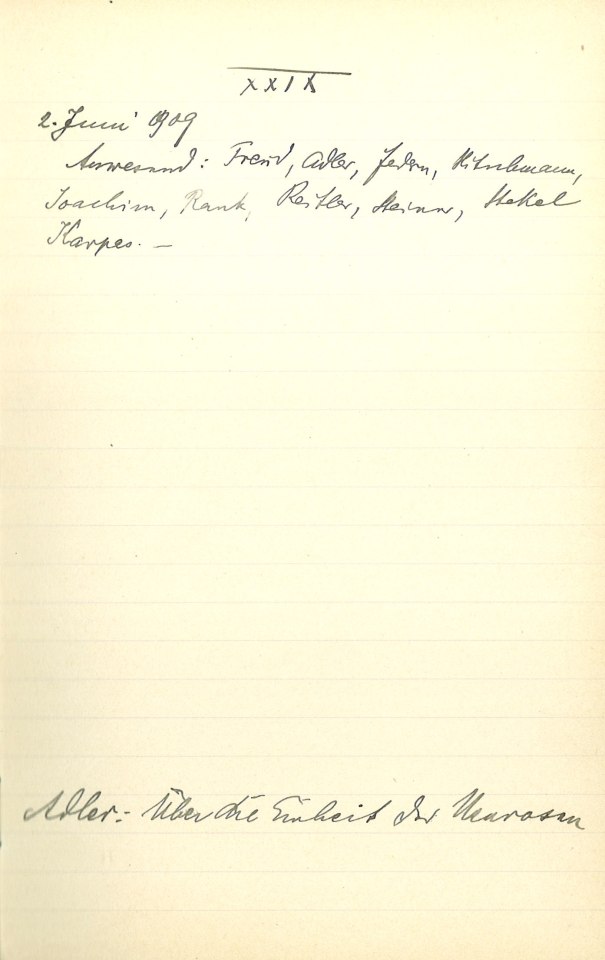 XXIX
2. Juni 1909
Anwesend: Freud, Adler, Federn, Hitschmann,
Joachim, Rank, Reitler, Steiner, Stekel
Karpas. –
Adler: Über die Einheit der Neurosen